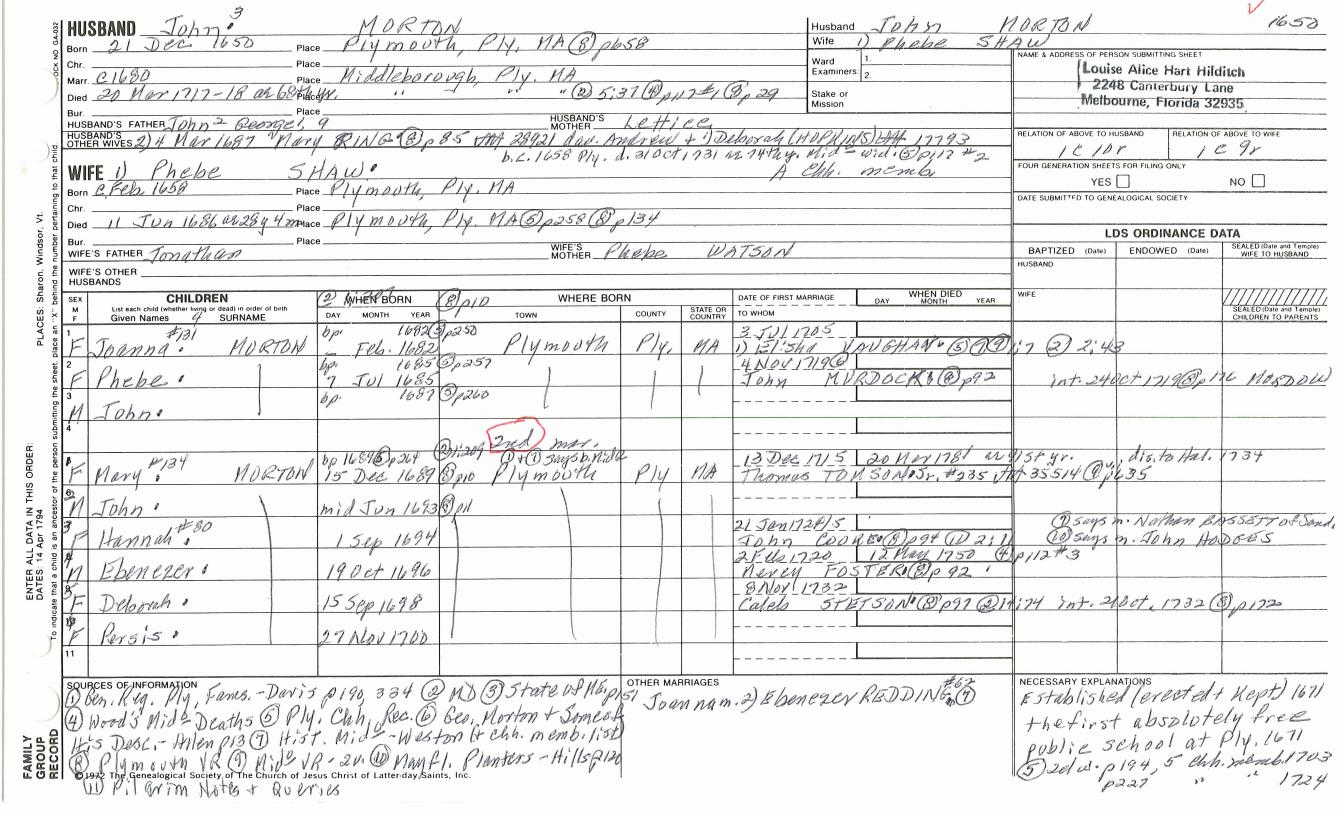 HUSBAND John³ MORTON
Born 21 Dec 1650 Place Plymouth, Ply. MA ⑧ p658
Chr. Place
Marr. c1680 Place Middleborough, Ply. MA
Died 20 Mar 1717-18 Place " " " p29
Bur. Place
HUSBAND'S FATHER John² George¹, 9 HUSBAND'S MOTHER Lettice
HUSBAND'S OTHER WIVES 2) 4 Mar 1687 Mary RING ⑧ p85 dau. Andrew + 1) Deborah (HOPKINS) 17793
b.c. 1658 Ply. d. 31 Oct, 1731 wid. ⑤ p117 #2
A Chh. memb
WIFE 1) Phebe SHAW
Born c Feb 1658 Place Plymouth, Ply. MA
Chr. Place
Died 11 Jun 1686 ae 28y 4m Place Plymouth, Ply. MA ⑤ p258 ⑧ p134
Bur. Place
WIFE'S FATHER Jonathan WIFE'S MOTHER Phebe WATSON
WIFE'S OTHER HUSBANDS
Husband John MORTON 1650
Wife 1) Phebe SHAW
Ward Examiners 1. 2.
Stake or Mission
NAME & ADDRESS OF PERSON SUBMITTING SHEET
Louise Alice Hart Hilditch
2248 Canterbury Lane
Melbourne, Florida 32935
RELATION OF ABOVE TO HUSBAND RELATION OF ABOVE TO WIFE
1c 10r 1c 9r
FOUR GENERATION SHEETS FOR FILING ONLY
YES NO
DATE SUBMITTED TO GENEALOGICAL SOCIETY
LDS ORDINANCE DATA
BAPTIZED (Date) ENDOWED (Date) SEALED (Date and Temple) WIFE TO HUSBAND
HUSBAND
WIFE
SEALED (Date and Temple) CHILDREN TO PARENTS
SEX M F
CHILDREN
List each child (whether living or dead) in order of birth
Given Names SURNAME
WHEN BORN DAY MONTH YEAR
⑧ p10 WHERE BORN TOWN COUNTY STATE OR COUNTRY
DATE OF FIRST MARRIAGE TO WHOM
WHEN DIED DAY MONTH YEAR
#131 bp. 1682 ⑤ p250 3 Jul 1705
1 F Joanna MORTON Feb. 1682 Plymouth Ply. MA 1) Elisha VAUGHAN ② 2:43
bp. 1685 ⑤ p257 4 Nov 1719 ⑥
2 F Phebe 7 Jul 1685 John MURDOCK ⑧ p92 int. 24 Oct 1719 ⑧ p176
bp. 1687 ⑤ p260
3 M John
4
2nd mar.
bp 1689 ⑤ p264 says b. Mid° 13 Dec 1715 20 Mar 178 dis. to Hal. 1734
F Mary #134 MORTON 15 Dec 1689 ⑧ p10 Plymouth Ply MA Thomas TOMSON Jr. #235 35514 p635
M John mid Jun 1693 ⑧ p11
21 Jan 1724/5 ⑦ says m. Nathan BASSETT of Sand.
F Hannah #80 1 Sep 1694 John COOKE ⑧ p94 ⑩ says m. John HODGES
2 Feb 1720 12 May 1750 ④ p112 #3
M Ebenezer 19 Oct 1696 Mercy FOSTER ⑧ p92
8 Nov 1732
F Deborah 15 Sep 1698 Caleb STETSON ⑧ p97 int. 21 Oct. 1732 ⑧ p172
F Persis 27 Nov 1700
11
SOURCES OF INFORMATION
① Gen. Reg. Ply. Fams. - Davis p190, 334 ② MD ③ State of Me. p151
④ Wood's Mid° Deaths ⑤ Ply. Chh. Rec. ⑥ Geo. Morton + Some of
His Desc. - Allen p13 ⑦ Hist. Mid° - Weston (+ chh. memb. list)
⑧ Plymouth VR ⑨ Mid° VR - 2v. ⑩ Mayfl. Planters - Hills p120
⑪ Pilgrim Notes + Queries
©1972 The Genealogical Society of The Church of Jesus Christ of Latter-day Saints, Inc.
OTHER MARRIAGES
Joanna m. 2) Ebenezer REDDING #62 ⑦
NECESSARY EXPLANATIONS
Established (erected + kept) 1671
the first absolutely free
public school at Ply. 1671
⑤ 2d w. p194, 5 chh. memb. 1703
p227 " " 1724
FAMILY GROUP RECORD
ENTER ALL DATA IN THIS ORDER:
DATES: 14 Apr 1794
PLACES: Sharon, Windsor, Vt.
To indicate that a child is an ancestor of the person submitting the sheet, place an "X" behind the number pertaining to that child